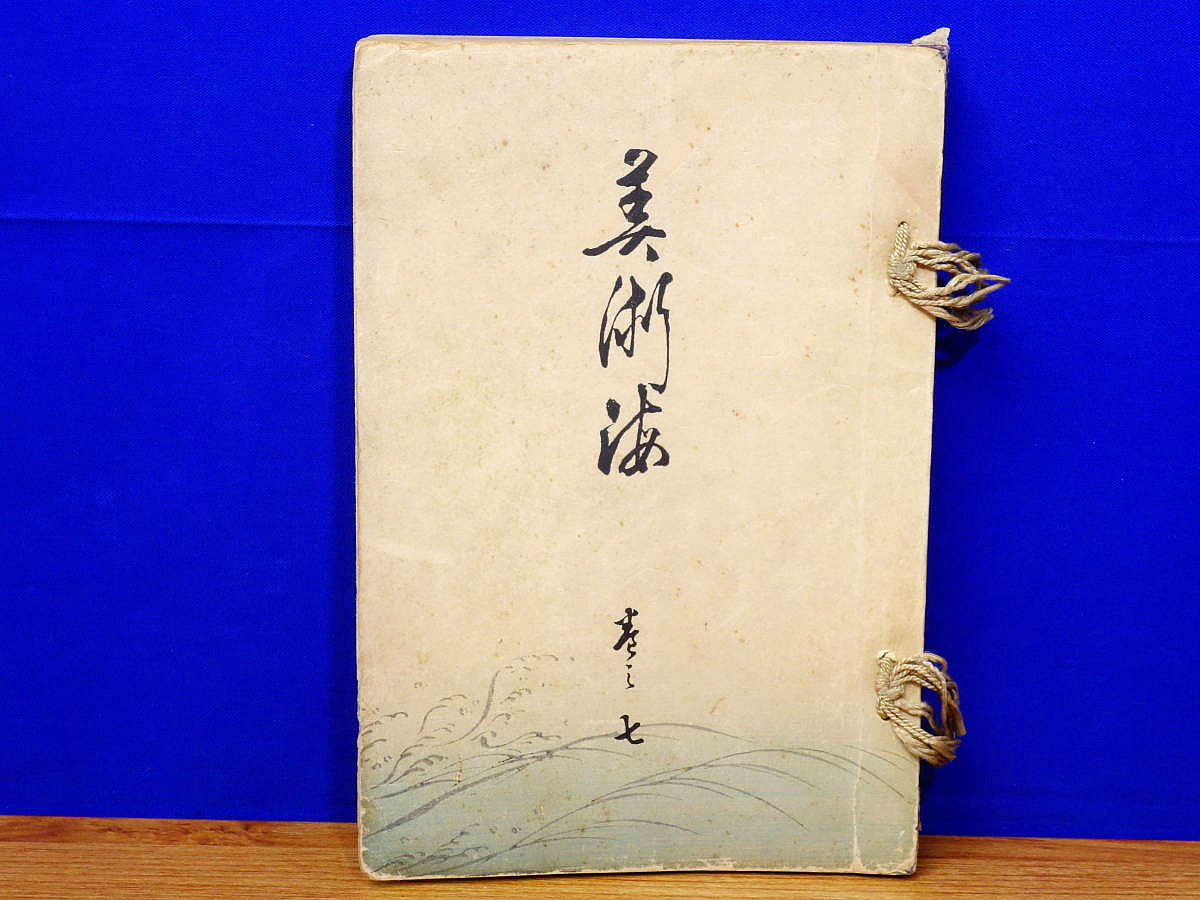 美術海
巻之七